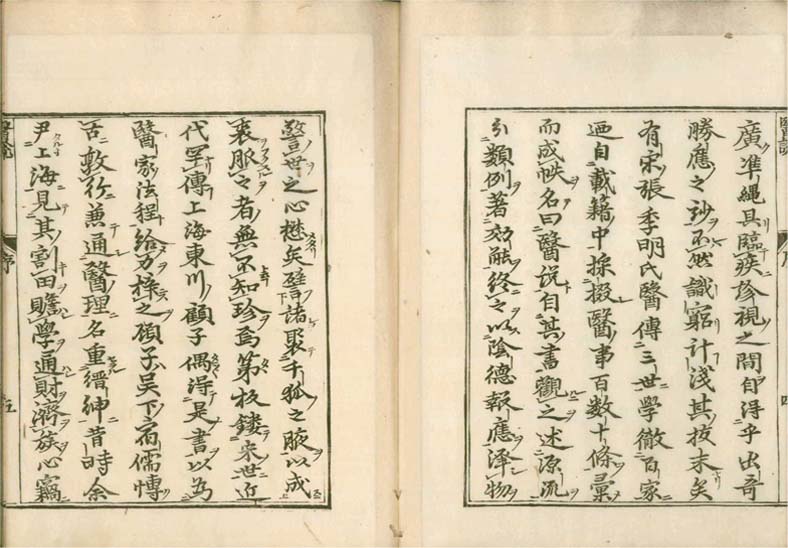 醫說
序
四
廣準繩具臨疾診視之間自得乎出奇
勝應之玅不然識窮計淺其技末矣
有宋張季明氏醫傳三世學徹百家
迺自載籍中採掇醫事百數十條彙
而成帙名曰醫說自其書觀之述源流
引類例著効驗終之以陰德報應澤物
警世之心懋矣譬諸聚千狐之腋以成
裘服之者無不知珍焉第板鏤宋世近
代罕傳上海東川顧子偶得是書以為
醫家法程給力梓之顧子吳下宿儒博
古敦行兼通醫理名重縉紳昔時余
尹上海見其割田贍學通財濟族心竊
醫說
序
五